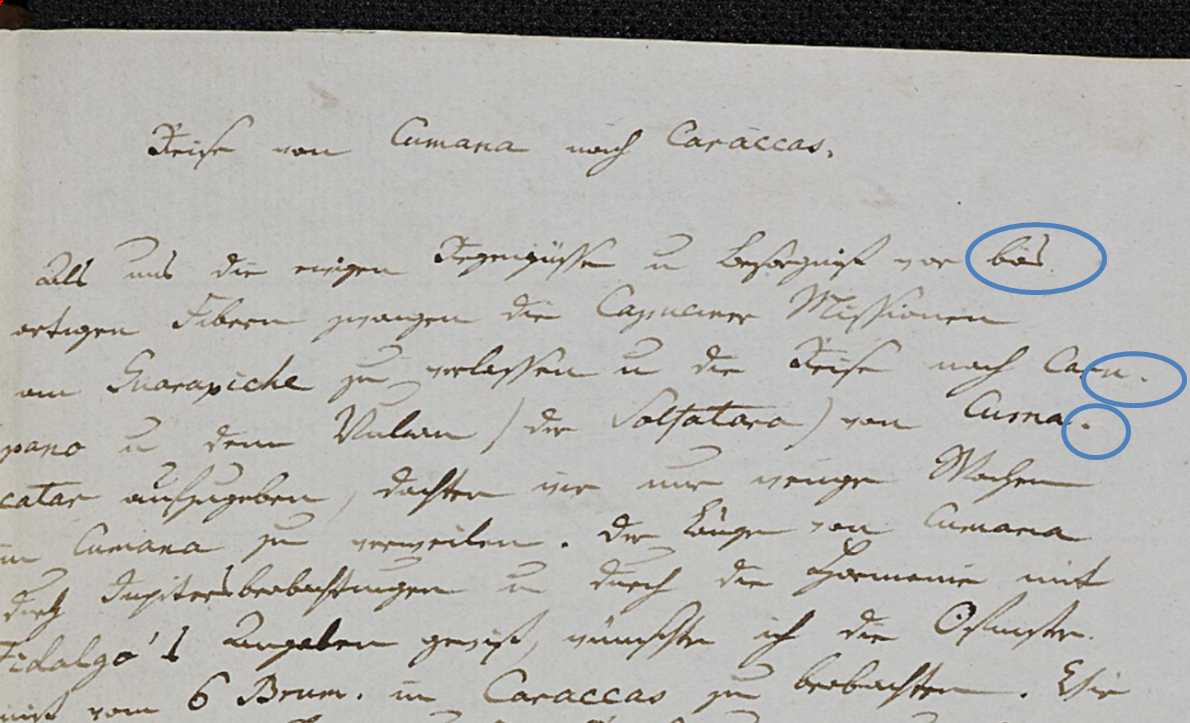 Reise von Cumana nach Caraccas.
Als uns die ewigen Regengüsse u Besorgniß vor bös
artigen Fibern zwangen die Capuciner Missionen
am Guarapiche zu verlassen u die Reise nach Caru.
pano u dem Vulcan (der Solfatara) von Cuma.
catar aufzugeben, dachten wir nur wenige Wochen
in Cumana zu verweilen. Die Länge von Cumana
durch Jupitersbeobachtungen u durch die Harmonie mit
Fidalgo's Angaben gewiß, wünschte ich die Osinster.
niß vom 6 Brum. in Caraccas zu beobachten. Wir